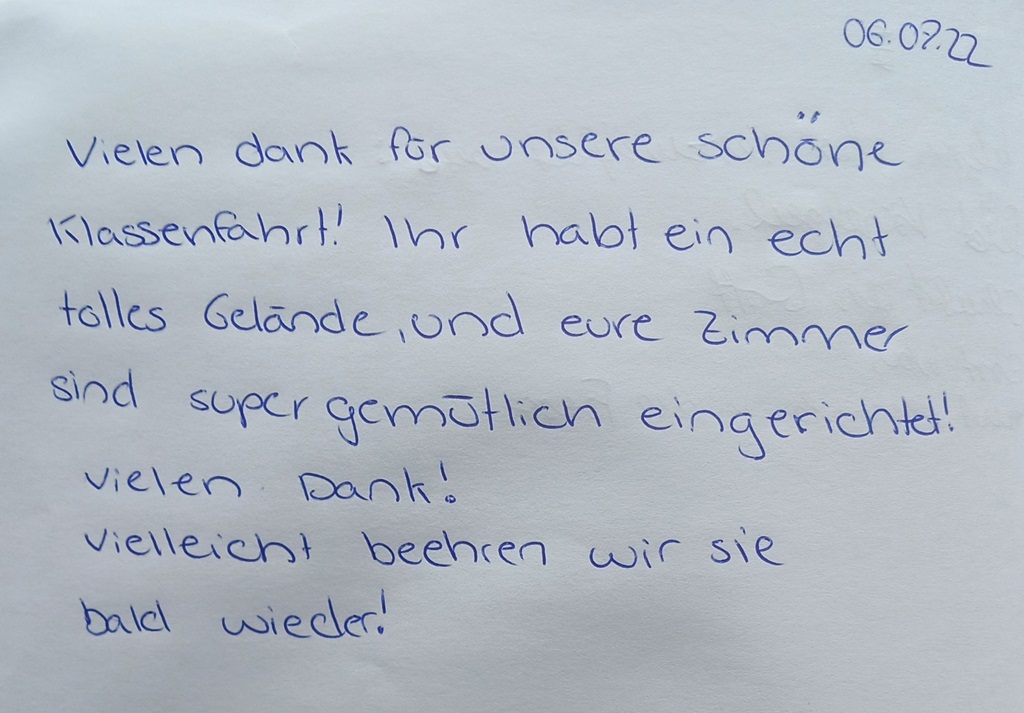 06.07.22
Vielen dank für unsere schöne
Klassenfahrt! Ihr habt ein echt
tolles Gelände, und eure Zimmer
sind super gemütlich eingerichtet!
Vielen Dank!
Vielleicht beehren wir sie
bald wieder!